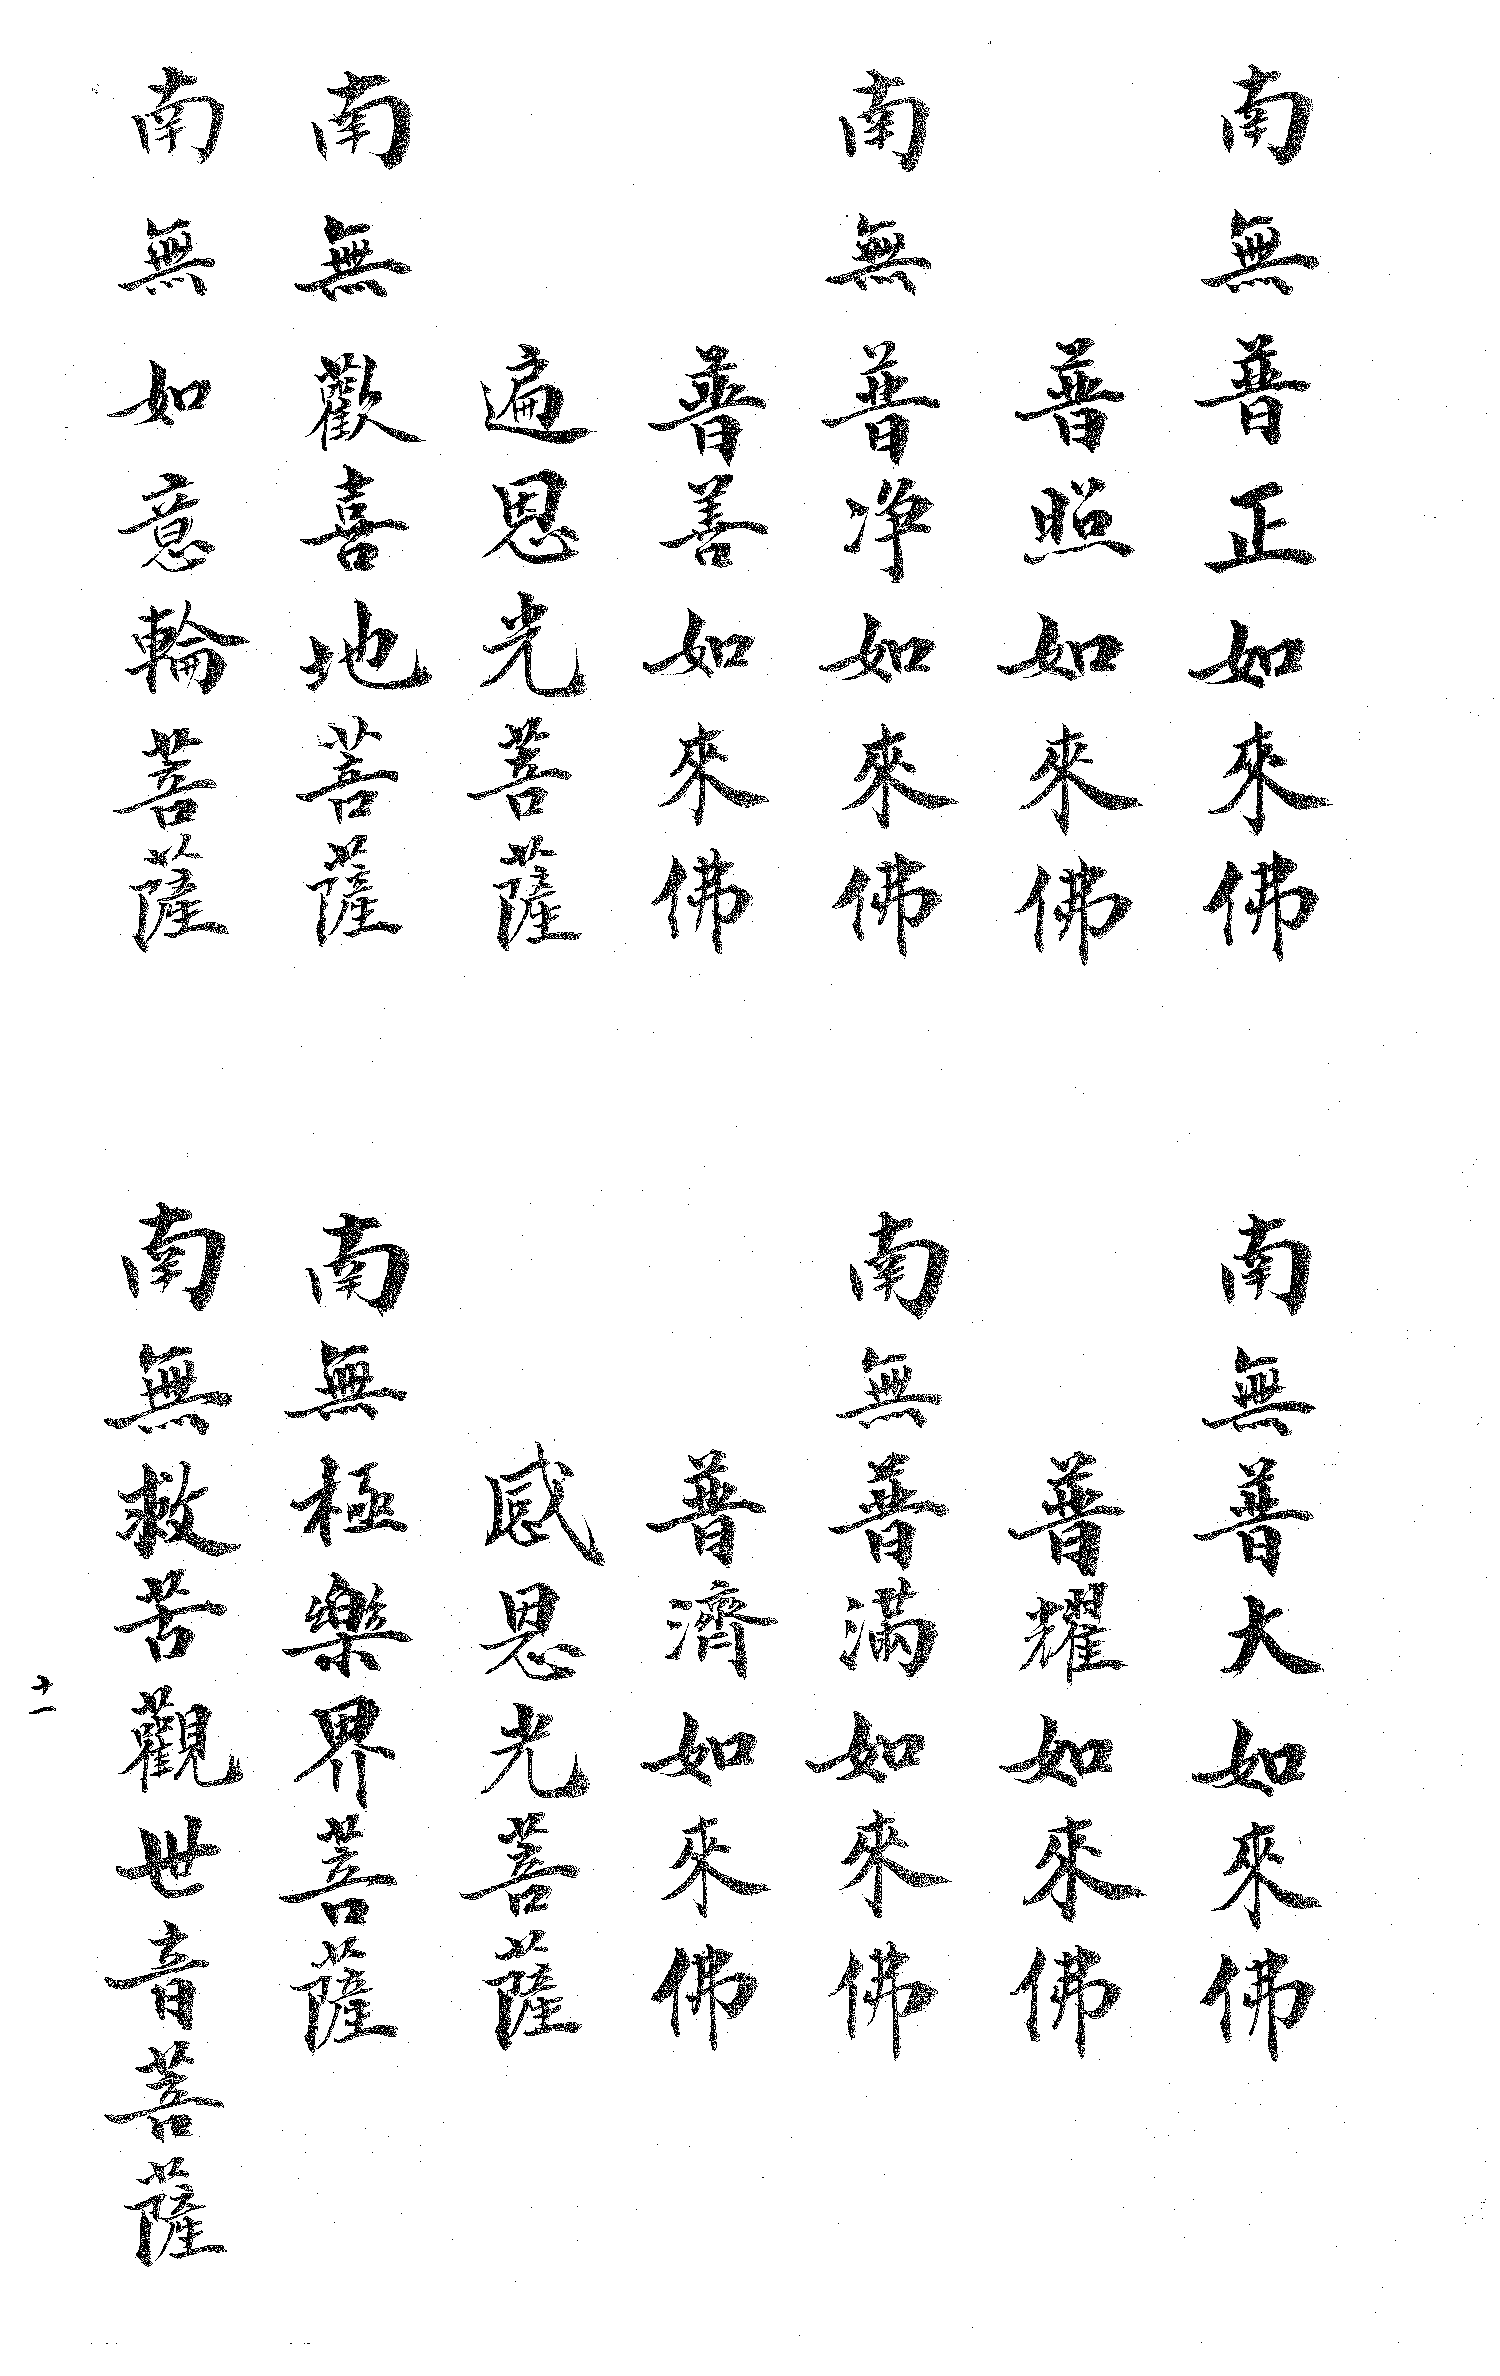 南無普正如來佛
南無普大如來佛
普照如來佛
普耀如來佛
南無普净如來佛
南無普滿如來佛
普善如來佛
普濟如來佛
遍恩光菩薩
感恩光菩薩
南無歡喜地菩薩
南無極樂界菩薩
南無如意輪菩薩
南無救苦觀世音菩薩
十一